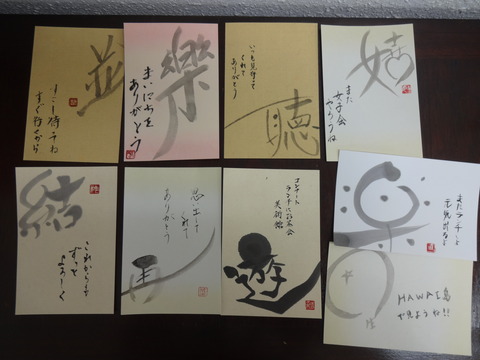 樂
まいにちを
ありがとう
聴
いつも見守って
くれて
ありがとう
嬉
また
女子会
やろうね
すぐ行くから
結
これからも
ずっと
よろしく
思出して
くれて
ありがとう
遊
コンサート
ランチにお茶会
美術館
またランチ
HAWAI島
で見ようね!!